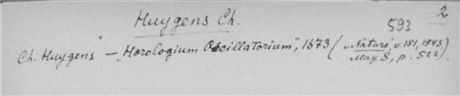 Huygens Ch.
593 2
Ch. Huygens — "Horologium Oscillatorium", 1673 ("Nature", v. 151, 1943.
May 8, p. 522)